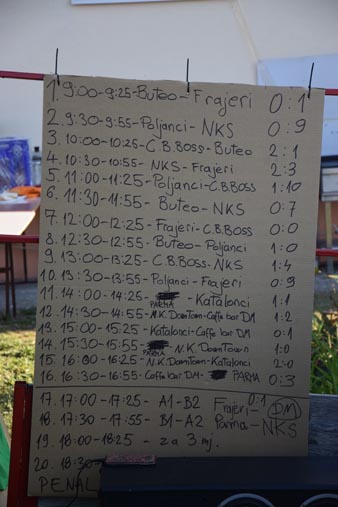 1. 9:00-9:25-Buteo-Frajeri 0:1
2. 9:30-9:55-Poljanci-NKS 0:9
3. 10:00-10:25-C.B.BOSS-Buteo 2:1
4. 10:30-10:55-NKS-Frajeri 2:3
5. 11:00-11:25-Poljanci-C.B.BOSS 1:10
6. 11:30-11:55-Buteo-NKS 0:7
7. 12:00-12:25-Frajeri-C.B.BOSS 0:0
8. 12:30-12:55-Buteo-Poljanci 1:0
9. 13:00-13:25-C.B.BOSS-NKS 1:4
10. 13:30-13:55-Poljanci-Frajeri 0:9
11. 14:00-14:25-PARMA-Katalonci 1:1
12. 14:30-14:55-N.K.DownTown-Caffe bar DM 1:2
13. 15:00-15:25-Katalonci-Caffe bar DM 0:1
14. 15:30-15:55-PARMA-N.K.DownTown 1:0
15. 16:00-16:25-N.K.DownTown-Katalonci 2:0
16. 16:30-16:55-Caffe bar DM-PARMA 0:3
17. 17:00-17:25-A1-B2 Frajeri-0:1 DM
18. 17:30-17:55-B1-A2 Parma-NKS
19. 18:00-18:25-za 3 mj.
20. 18:30-
PENAL